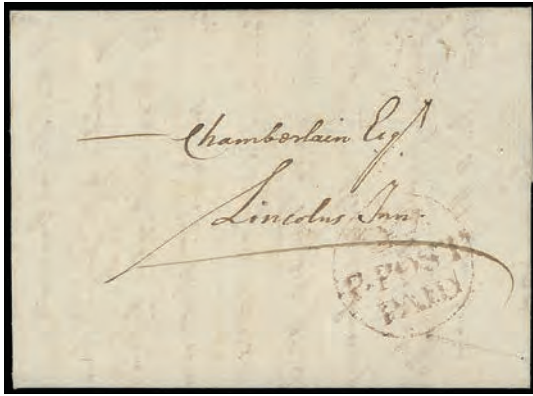 Chamberlain Esqr.
Lincolns Inn.
P. POST
PAID